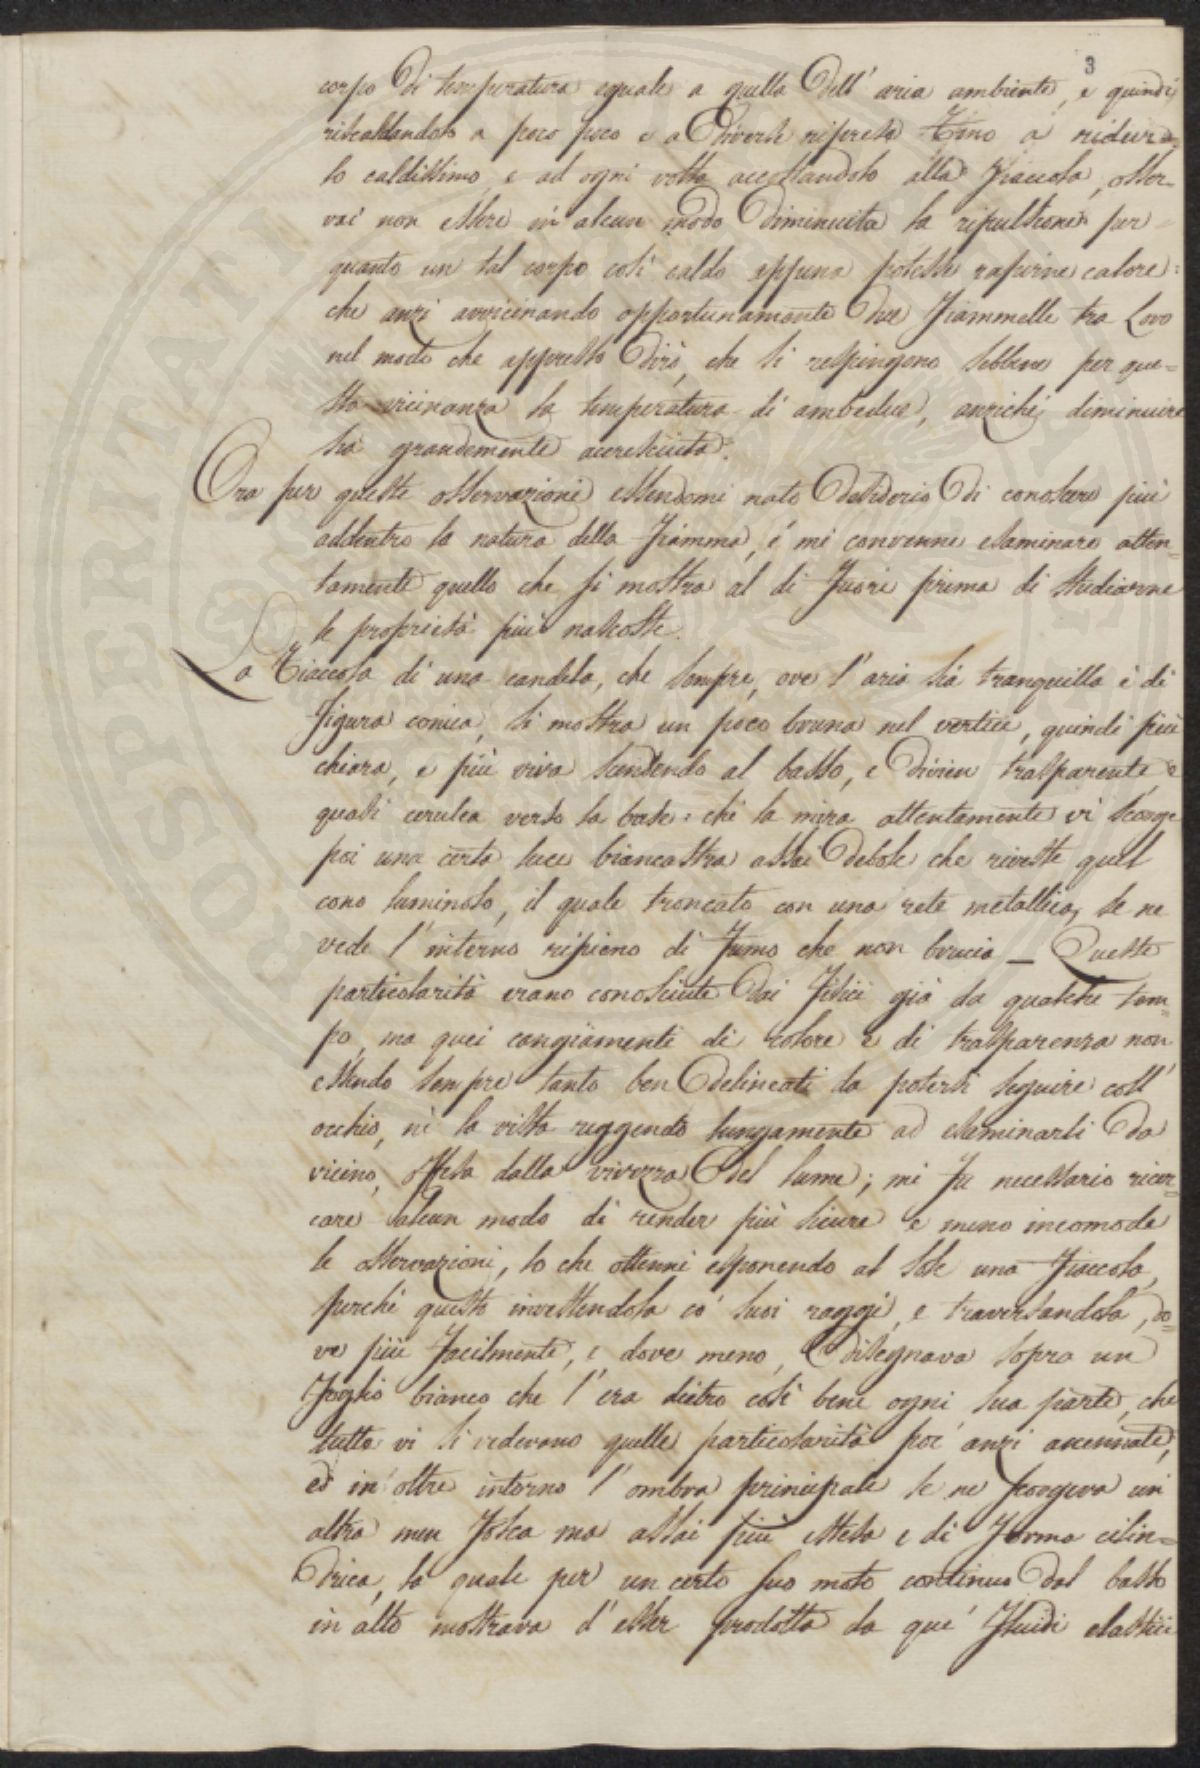 3
corpo di temperatura eguale a quella dell' aria ambiente, e quindi
riscaldandolo a poco poco e a diverse riprese fino a ridur=
lo caldissimo, e ad ogni volta accostandolo alla fiaccola, osser-
vai non essere in alcun modo diminuita la ripulsione per
quanto un tal corpo così caldo appena potesse rapirne calore:
che anzi avvicinando opportunamente due fiammelle tra Loro
nel modo che appresso dirò, che si respingono sebbene per que-
sta vicinanza la temperatura di ambedue, anziché diminuire
sia grandemente accresciuta.
Ora per queste osservazioni essendomi nato desiderio di conoscere più
addentro la natura della fiamma, e' mi convenne esaminare atten-
tamente quello che si mostra al di fuori prima di studiarne
le proprietà più nascoste.
La fiaccola di una candela, che sempre, ove l' aria sia tranquilla è di
figura conica, si mostra un poco bruna nel vertice, quindi più
chiara, e più viva scendendo al basso, e divien trasparente e
quasi cerulea verso la base: chi la mira attentamente vi scorge
poi una certa luce biancastra assai debole che riveste quel
cono luminoso, il quale troncato con una rete metallica, se ne
vede l' interno ripieno di fumo che non brucia — Queste
particolarità erano conosciute dai fisici già da qualche tem-
po, ma quei cangiamenti di colore e di trasparenza non
essendo sempre tanto ben delineati da potersi seguire coll'
occhio, nè la vista reggendo lungamente ad esaminarli da
vicino, offesa dalla vivezza del lume; mi fu necessario ricer-
care alcun modo di render più sicure e meno incomode
le osservazioni, lo che ottenni esponendo al Sole una fiaccola,
perchè questo investendola co' suoi raggi, e traversandola, do-
ve più facilmente, e dove meno, disegnava sopra un
foglio bianco che l' era dietro così bene ogni sua parte, che
tutte vi si vedevano quelle particolarità poc' anzi accennate,
ed in oltre intorno l' ombra principale se ne scorgeva un
altra men fosca ma assai più estesa e di forma cilin-
drica, la quale per un certo suo moto continuo dal basso
in alto mostrava d' esser prodotta da que' fluidi elastici